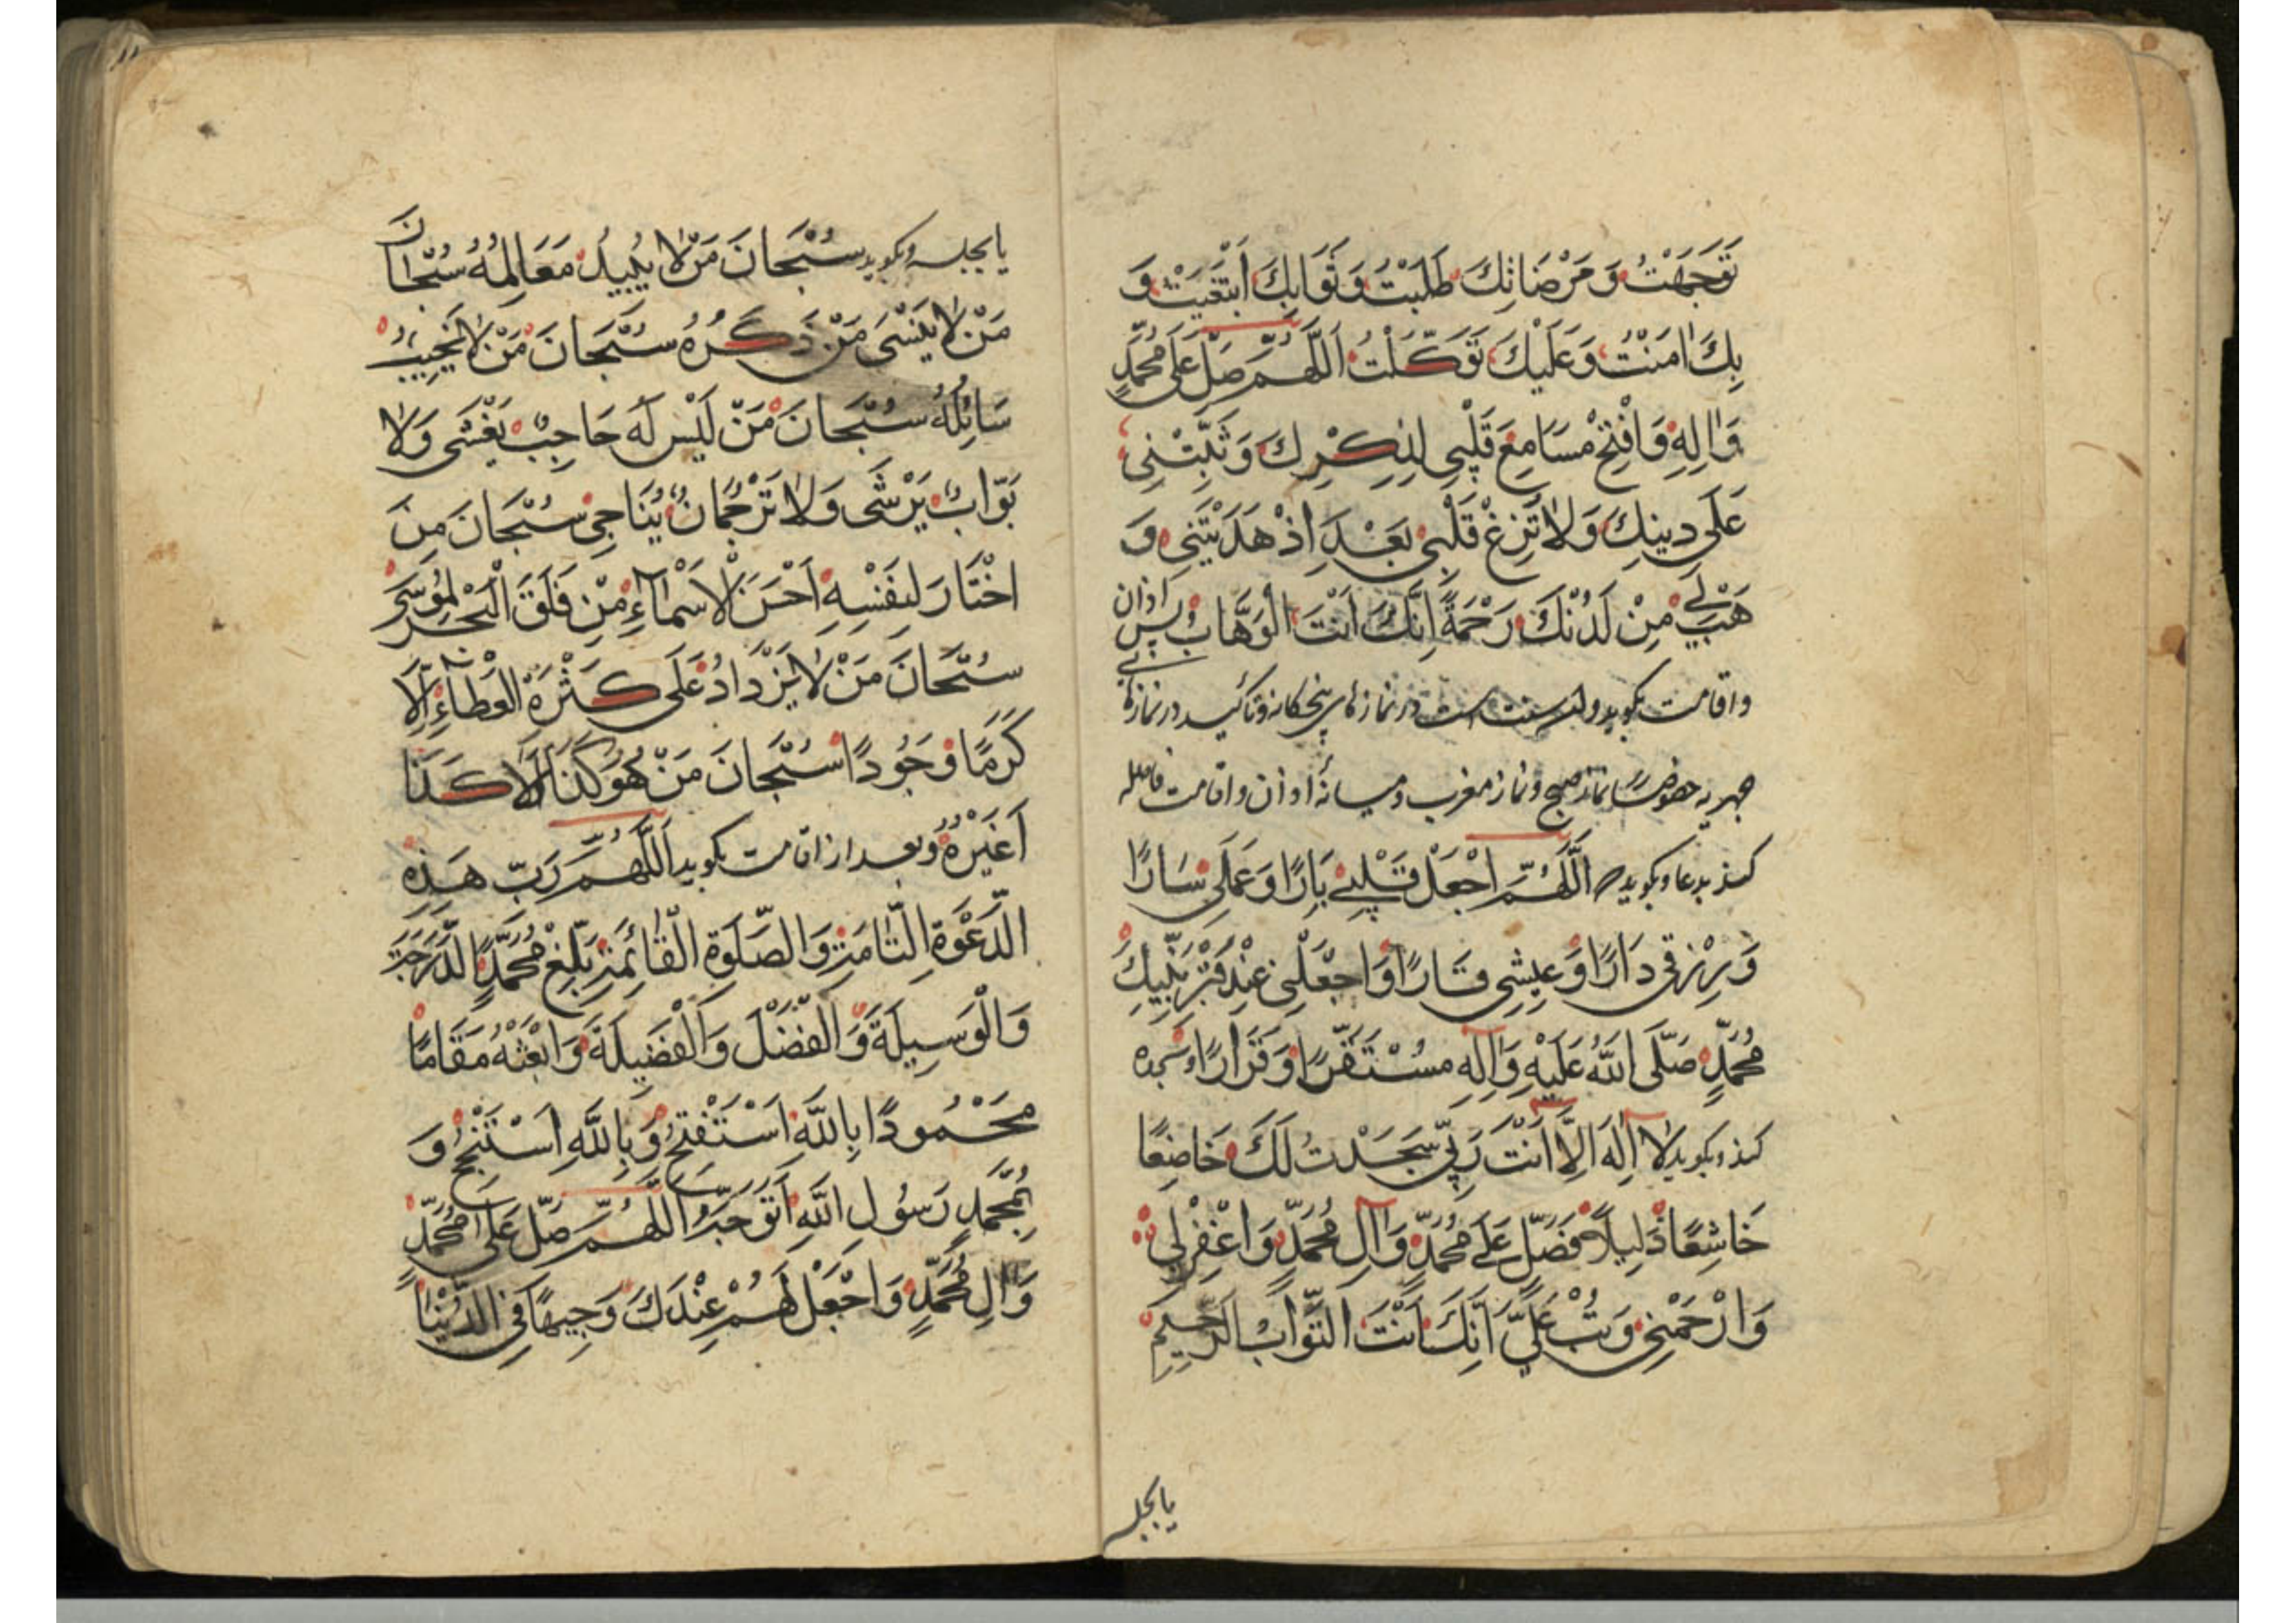 تَوَجَّهْتُ وَ مَرْضَاتِكَ طَلَبْتُ وَ ثَوَابِكَ ابْتَغَيْتُ وَ
بِكَ اٰمَنْتُ وَ عَلَيْكَ تَوَكَّلْتُ اَللّٰهُمَّ صَلِّ عَلٰى مُحَمَّدٍ
وَ اٰلِهِ وَ افْتَحْ مَسَامِعَ قَلْبِي لِذِكْرِكَ وَ ثَبِّتْنِي
عَلٰى دِينِكَ وَ لَا تُزِغْ قَلْبِي بَعْدَ اِذْ هَدَيْتَنِي وَ
هَبْ لِي مِنْ لَدُنْكَ رَحْمَةً اِنَّكَ اَنْتَ الْوَهَّابُ پس اذان
و اقامت بکوید و این سنت است در نمازهای پنجکانه و تاکید در نمازهای
جهریه خصوصا نماز صبح و نماز مغرب و میانه اذان و اقامت فاصله
کند بدعا و بکوید اَللّٰهُمَّ اجْعَلْ قَلْبِي بَارًّا وَ عَمَلِي سَارًّا
وَ رِزْقِي دَارًّا وَ عِيشِي قَارًّا وَ اجْعَلْنِي عِنْدَ قَبْرِ نَبِيِّكَ
مُحَمَّدٍ صَلَّى اللّٰهُ عَلَيْهِ وَ اٰلِهِ مُسْتَقَرًّا وَ قَرَارًا و سجده
کند و بکوید لَا اِلٰهَ اِلَّا اَنْتَ رَبِّي سَجَدْتُ لَكَ خَاضِعًا
خَاشِعًا ذَلِيلًا فَصَلِّ عَلٰى مُحَمَّدٍ وَ اٰلِ مُحَمَّدٍ وَ اغْفِرْ لِي
وَ ارْحَمْنِي وَ تُبْ عَلَيَّ اِنَّكَ اَنْتَ التَّوَّابُ الرَّحِيمُ
یا بجلسه
یا بجلسه و بکوید سُبْحَانَ مَنْ لَا يُبِيدُ مَعَالِمُهُ سُبْحَانَ
مَنْ لَا يَنْسٰى مَنْ ذَكَرَهُ سُبْحَانَ مَنْ لَا يُخَيِّبُ
سَائِلَهُ سُبْحَانَ مَنْ لَيْسَ لَهُ حَاجِبٌ يُغْشٰى وَ لَا
بَوَّابٌ يُرْشٰى وَ لَا تَرْجُمَانٌ يُنَاجِي سُبْحَانَ مَنِ
اخْتَارَ لِنَفْسِهِ اَحْسَنَ الْاَسْمَاءِ مَنْ فَلَقَ الْبَحْرَ لِمُوسٰى
سُبْحَانَ مَنْ لَا يَزْدَادُ عَلٰى كَثْرَةِ الْعَطَاءِ اِلَّا
كَرَمًا وَ جُودًا سُبْحَانَ مَنْ هُوَ هٰكَذَا وَ لَا هٰكَذَا
غَيْرُهُ و بعد از اقامت بکوید اَللّٰهُمَّ رَبَّ هٰذِهِ
الدَّعْوَةِ التَّامَّةِ وَ الصَّلٰوةِ الْقَائِمَةِ بَلِّغْ مُحَمَّدًا الدَّرَجَةَ
وَ الْوَسِيلَةَ وَ الْفَضْلَ وَ الْفَضِيلَةَ وَ ابْعَثْهُ مَقَامًا
مَحْمُودًا بِاللّٰهِ اَسْتَفْتِحُ وَ بِاللّٰهِ اَسْتَنْجِحُ وَ
بِمُحَمَّدٍ رَسُولِ اللّٰهِ اَتَوَجَّهُ اَللّٰهُمَّ صَلِّ عَلٰى مُحَمَّدٍ
وَ اٰلِ مُحَمَّدٍ وَ اجْعَلْ لَهُمْ عِنْدَكَ وَجِيهًا فِي الدُّنْيَا